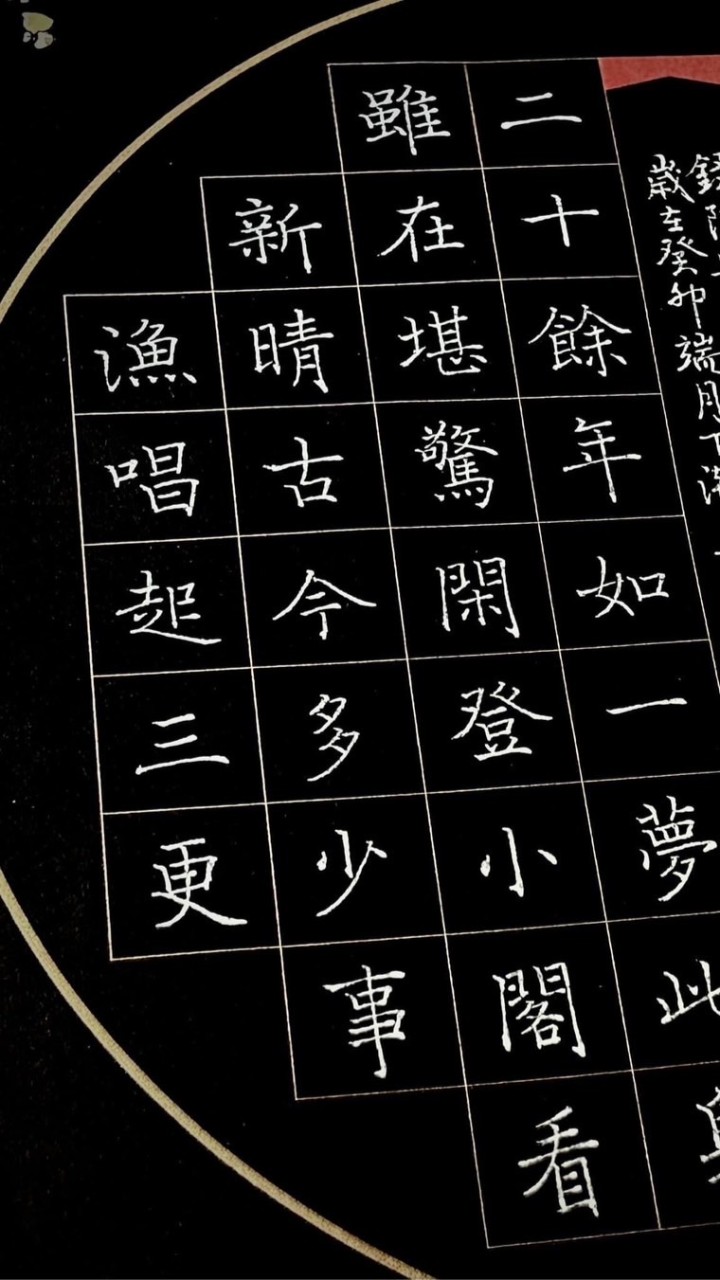 歲在癸卯端月下浣
二十餘年如一夢此身
雖在堪驚閑登小閣看
新晴古今多少事
漁唱起三更